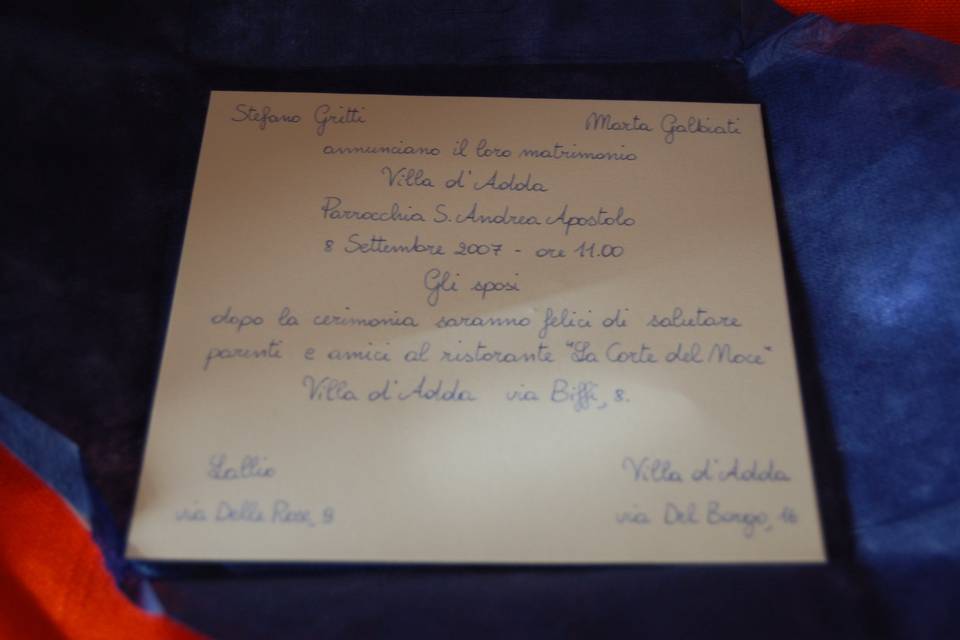 Stefano Gritti Marta Galbiati
annunciano il loro matrimonio
Villa d'Adda
Parrocchia S. Andrea Apostolo
8 Settembre 2007 - ore 11.00
Gli sposi
dopo la cerimonia saranno felici di salutare
parenti e amici al ristorante "La Corte del Noce"
Villa d'Adda via Biffi, 8.
Lallio Villa d'Adda
via Delle Rose, 9 via Del Borgo, 16